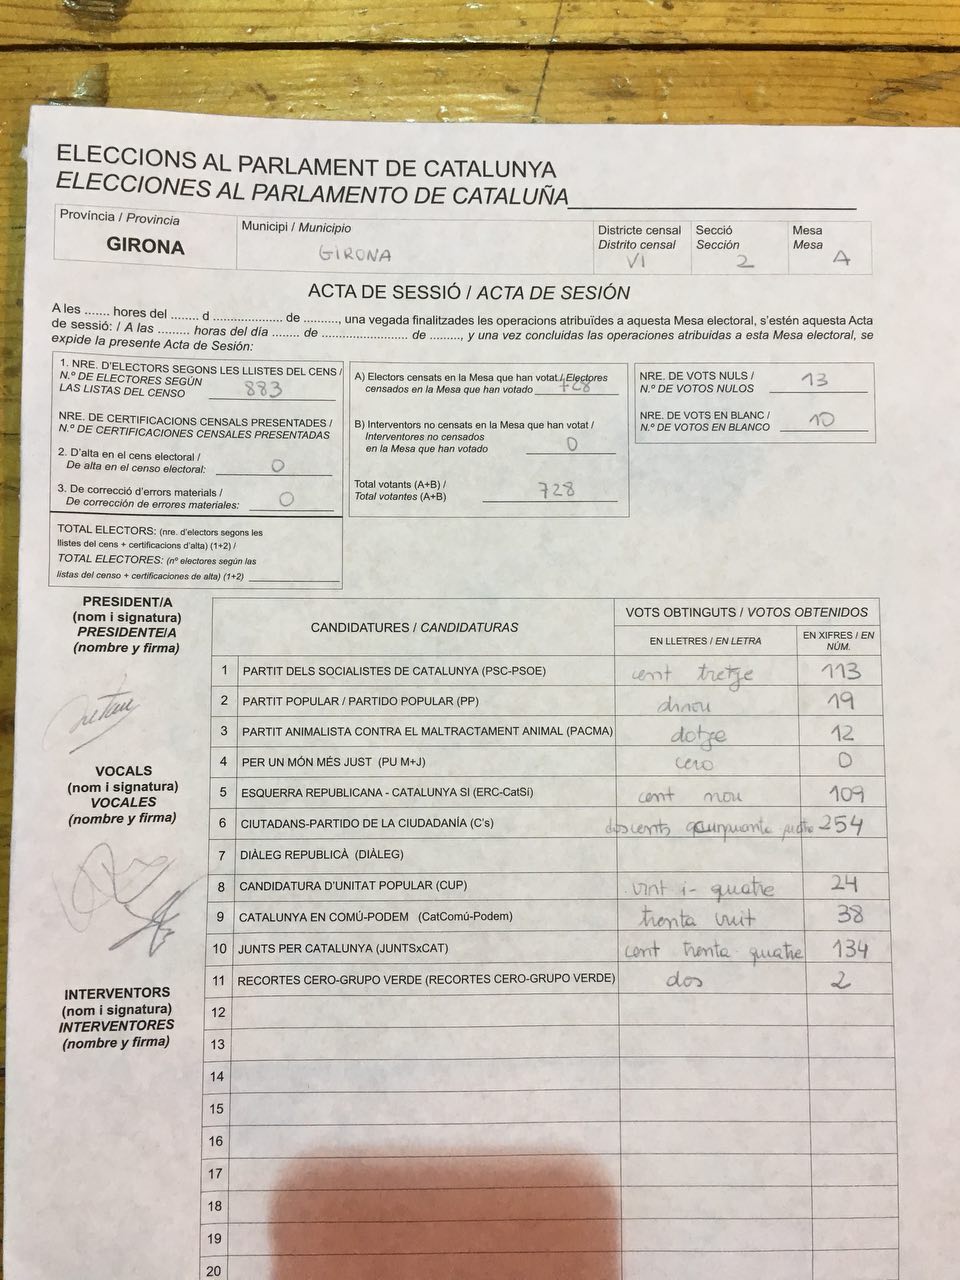 ELECCIONS AL PARLAMENT DE CATALUNYA
ELECCIONES AL PARLAMENTO DE CATALUÑA
Província / Provincia
GIRONA
Municipi / Municipio
GIRONA
Districte censal
Distrito censal
VI
Secció
Sección
2
Mesa
Mesa
A
ACTA DE SESSIÓ / ACTA DE SESIÓN
A les ....... hores del ....... d .................. de .........., una vegada finalitzades les operacions atribuïdes a aquesta Mesa electoral, s'estén aquesta Acta
de sessió: / A las ......... horas del día ....... de ....................... de ........., y una vez concluidas las operaciones atribuidas a esta Mesa electoral, se
expide la presente Acta de Sesión:
1. NRE. D'ELECTORS SEGONS LES LLISTES DEL CENS /
N.º DE ELECTORES SEGÚN
LAS LISTAS DEL CENSO 883
NRE. DE CERTIFICACIONS CENSALS PRESENTADES /
N.º DE CERTIFICACIONES CENSALES PRESENTADAS
2. D'alta en el cens electoral /
De alta en el censo electoral: 0
3. De correcció d'errors materials /
De corrección de errores materiales: 0
TOTAL ELECTORS: (nre. d'electors segons les
llistes del cens + certificacions d'alta) (1+2) /
TOTAL ELECTORES: (nº electores según las
listas del censo + certificaciones de alta) (1+2)
A) Electors censats en la Mesa que han votat / Electores
censados en la Mesa que han votado 728
B) Interventors no censats en la Mesa que han votat /
Interventores no censados
en la Mesa que han votado 0
Total votants (A+B) /
Total votantes (A+B) 728
NRE. DE VOTS NULS /
N.º DE VOTOS NULOS 13
NRE. DE VOTS EN BLANC /
N.º DE VOTOS EN BLANCO 10
PRESIDENT/A
(nom i signatura)
PRESIDENTE/A
(nombre y firma)
VOCALS
(nom i signatura)
VOCALES
(nombre y firma)
INTERVENTORS
(nom i signatura)
INTERVENTORES
(nombre y firma)
CANDIDATURES / CANDIDATURAS
VOTS OBTINGUTS / VOTOS OBTENIDOS
EN LLETRES / EN LETRA
EN XIFRES / EN
NÚM.
1 PARTIT DELS SOCIALISTES DE CATALUNYA (PSC-PSOE) cent tretze 113
2 PARTIT POPULAR / PARTIDO POPULAR (PP) dinou 19
3 PARTIT ANIMALISTA CONTRA EL MALTRACTAMENT ANIMAL (PACMA) dotze 12
4 PER UN MÓN MÉS JUST (PU M+J) cero 0
5 ESQUERRA REPUBLICANA - CATALUNYA SI (ERC-CatSí) cent nou 109
6 CIUTADANS-PARTIDO DE LA CIUDADANÍA (C's) doscents 254
7 DIÀLEG REPUBLICÀ (DIÀLEG)
8 CANDIDATURA D'UNITAT POPULAR (CUP) vint i- quatre 24
9 CATALUNYA EN COMÚ-PODEM (CatComú-Podem) trenta vuit 38
10 JUNTS PER CATALUNYA (JUNTSxCAT) cent trenta quatre 134
11 RECORTES CERO-GRUPO VERDE (RECORTES CERO-GRUPO VERDE) dos 2
12
13
14
15
16
17
18
19
20